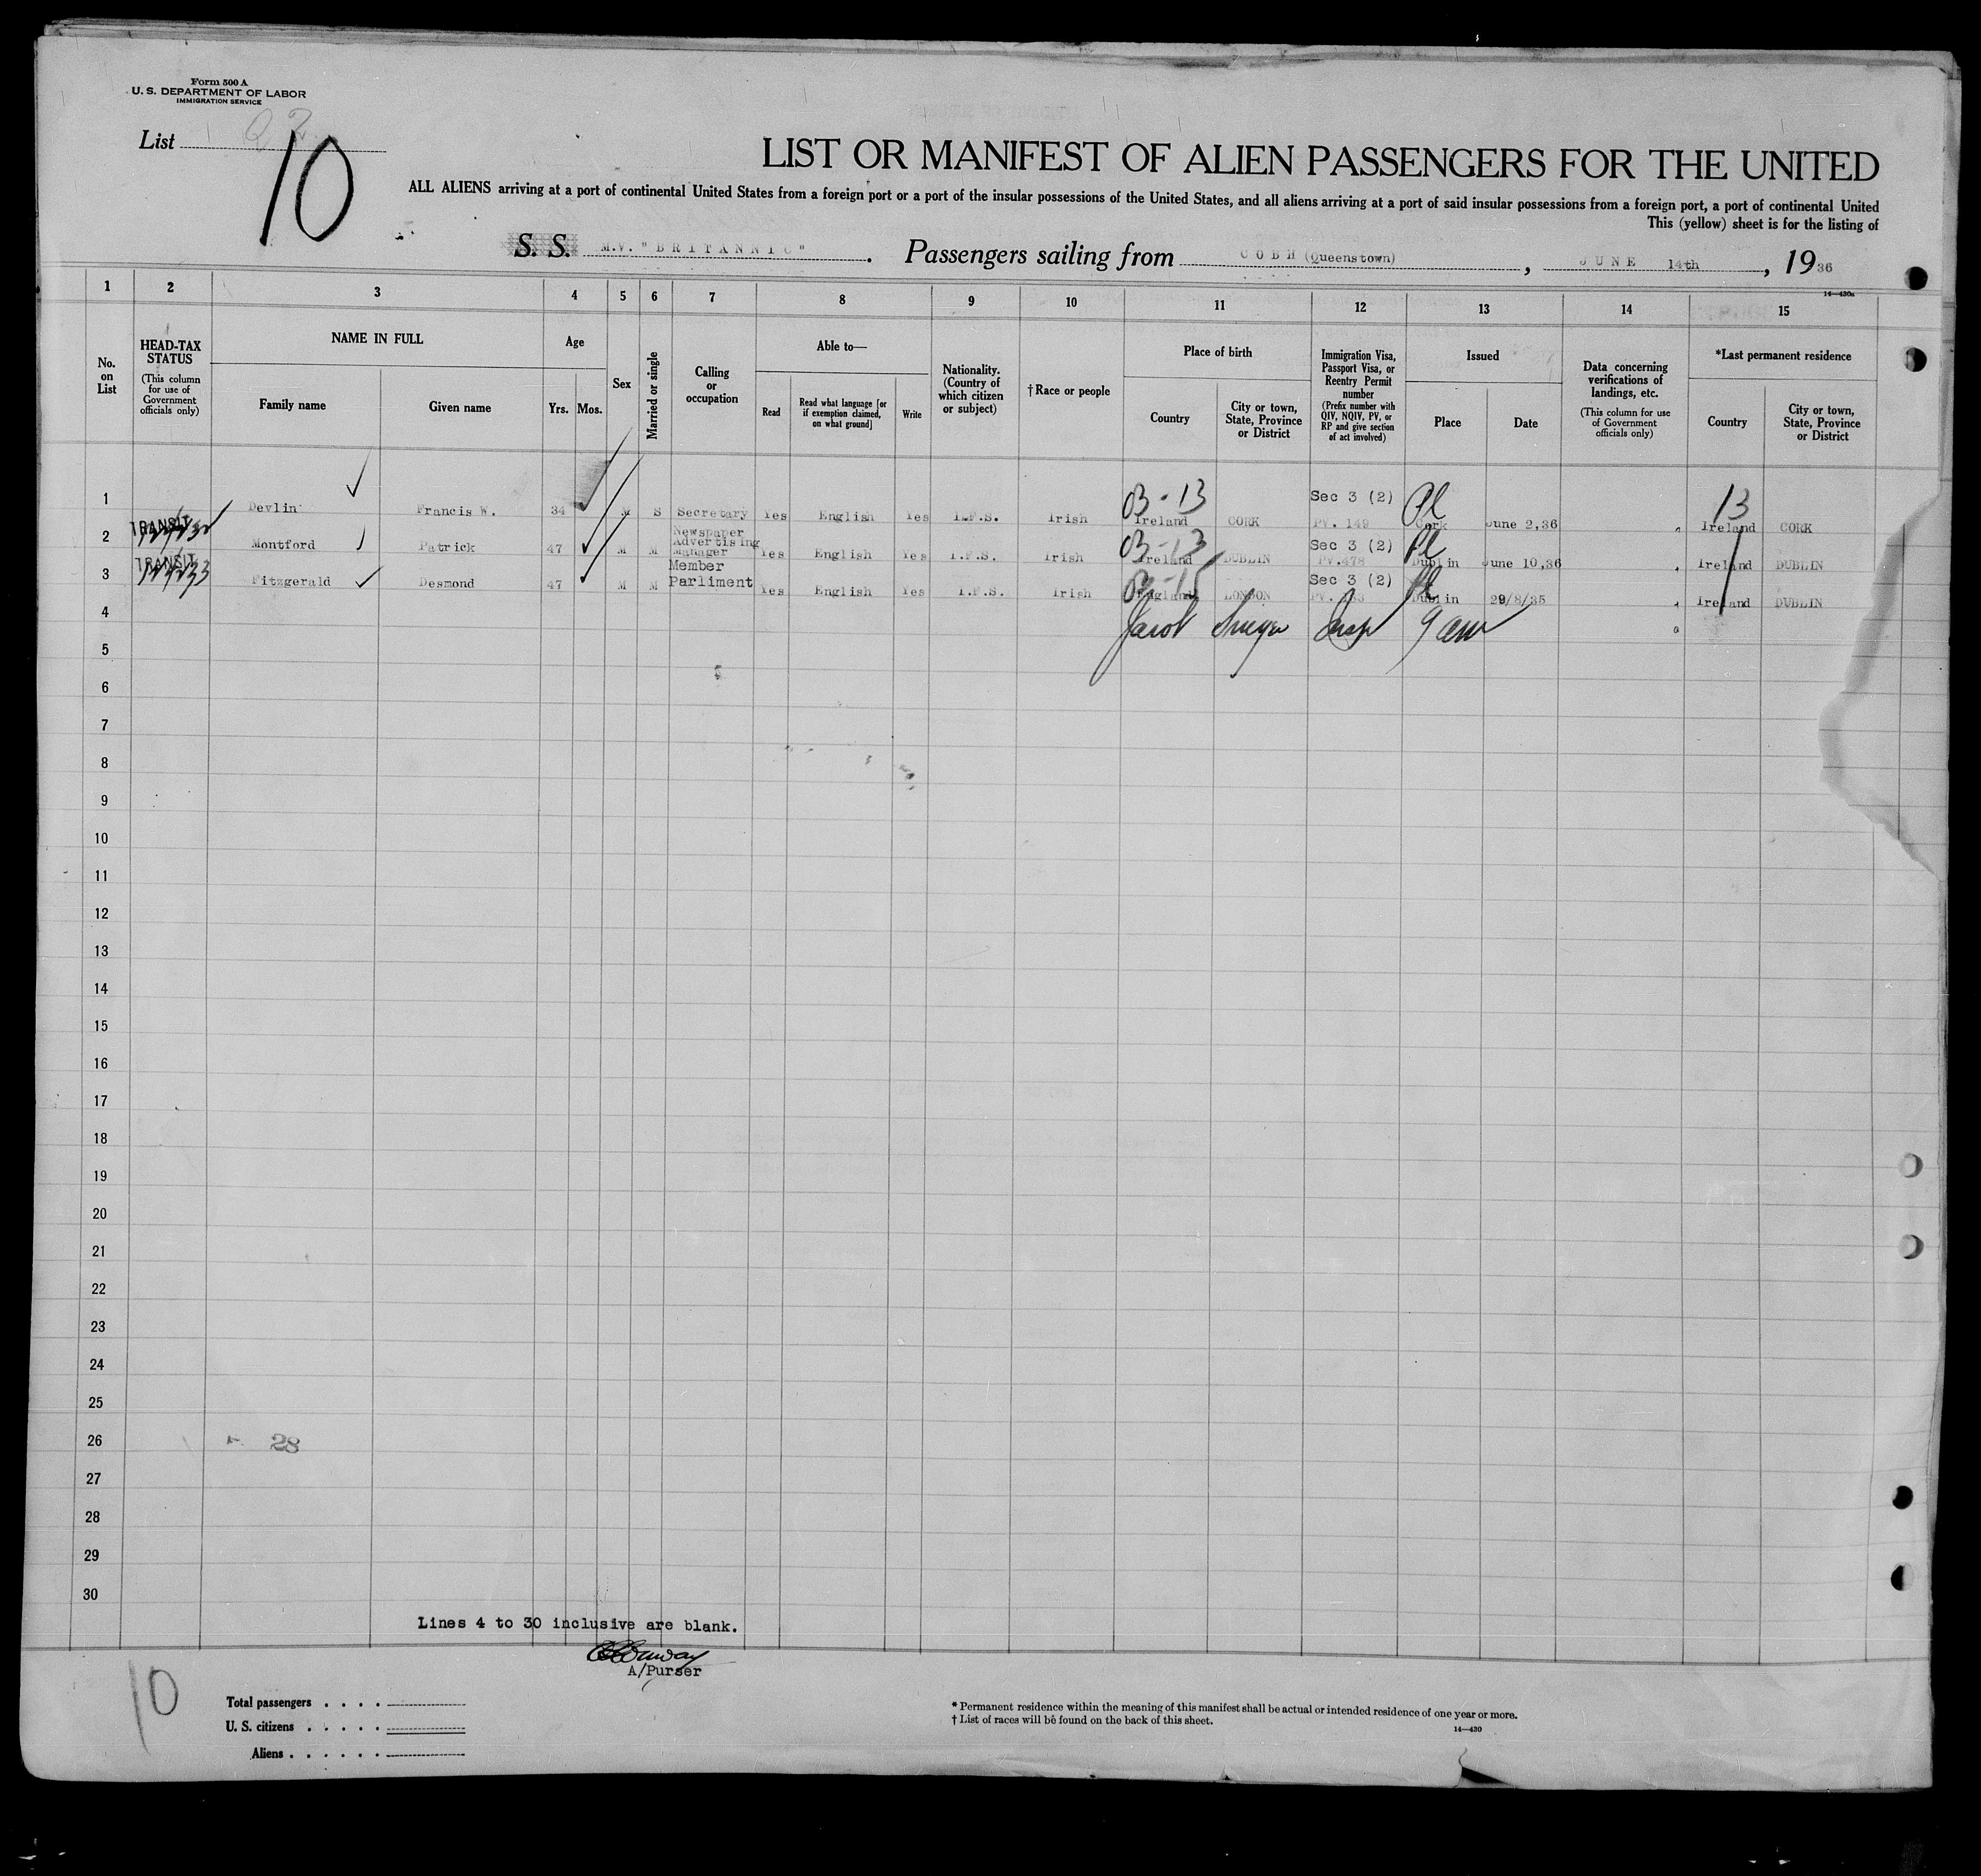 Form 500 A
U. S. DEPARTMENT OF LABOR
IMMIGRATION SERVICE
List
10
LIST OR MANIFEST OF ALIEN PASSENGERS FOR THE UNITED
ALL ALIENS arriving at a port of continental United States from a foreign port or a port of the insular possessions of the United States, and all aliens arriving at a port of said insular possessions from a foreign port, a port of continental United
This (yellow) sheet is for the listing of
S. S. M.V. "BRITANNIC" . Passengers sailing from COBH (Queenstown) , JUNE 14th , 1936
14—430a
1 2 3 4 5 6 7 8 9 10 11 12 13 14 15
No. on List
HEAD-TAX STATUS
(This column for use of Government officials only)
NAME IN FULL
Family name
Given name
Age
Yrs. Mos.
Sex
Married or single
Calling or occupation
Able to—
Read
Read what language [or if exemption claimed, on what ground]
Write
Nationality. (Country of which citizen or subject)
† Race or people
Place of birth
Country
City or town, State, Province or District
Immigration Visa, Passport Visa, or Reentry Permit number
(Prefix number with QIV, NQIV, PV, or RP and give section of act involved)
Issued
Place
Date
Data concerning verifications of landings, etc.
(This column for use of Government officials only)
*Last permanent residence
Country
City or town, State, Province or District
1 Devlin Francis W. 34 M S Secretary Yes English Yes I.F.S. Irish 03-13 Ireland CORK Sec 3 (2) PV. 149 Pl Cork June 2,36 13 Ireland CORK
2 TRANSIT Montford Patrick 47 M M Newspaper Advertising Manager Yes English Yes I.F.S. Irish 03-13 Ireland DUBLIN Sec 3 (2) PV.478 Pl Dublin June 10,36 Ireland DUBLIN
3 TRANSIT Fitzgerald Desmond 47 M M Member Parliment Yes English Yes I.F.S. Irish England LONDON Sec 3 (2) PV. Pl Dublin 29/8/35 Ireland DUBLIN
4
5
6
7
8
9
10
11
12
13
14
15
16
17
18
19
20
21
22
23
24
25
26 28
27
28
29
30
Lines 4 to 30 inclusive are blank.
A/Purser
10
Total passengers . . . .
U. S. citizens . . . . .
Aliens . . . . . .
* Permanent residence within the meaning of this manifest shall be actual or intended residence of one year or more.
† List of races will be found on the back of this sheet.
14—430